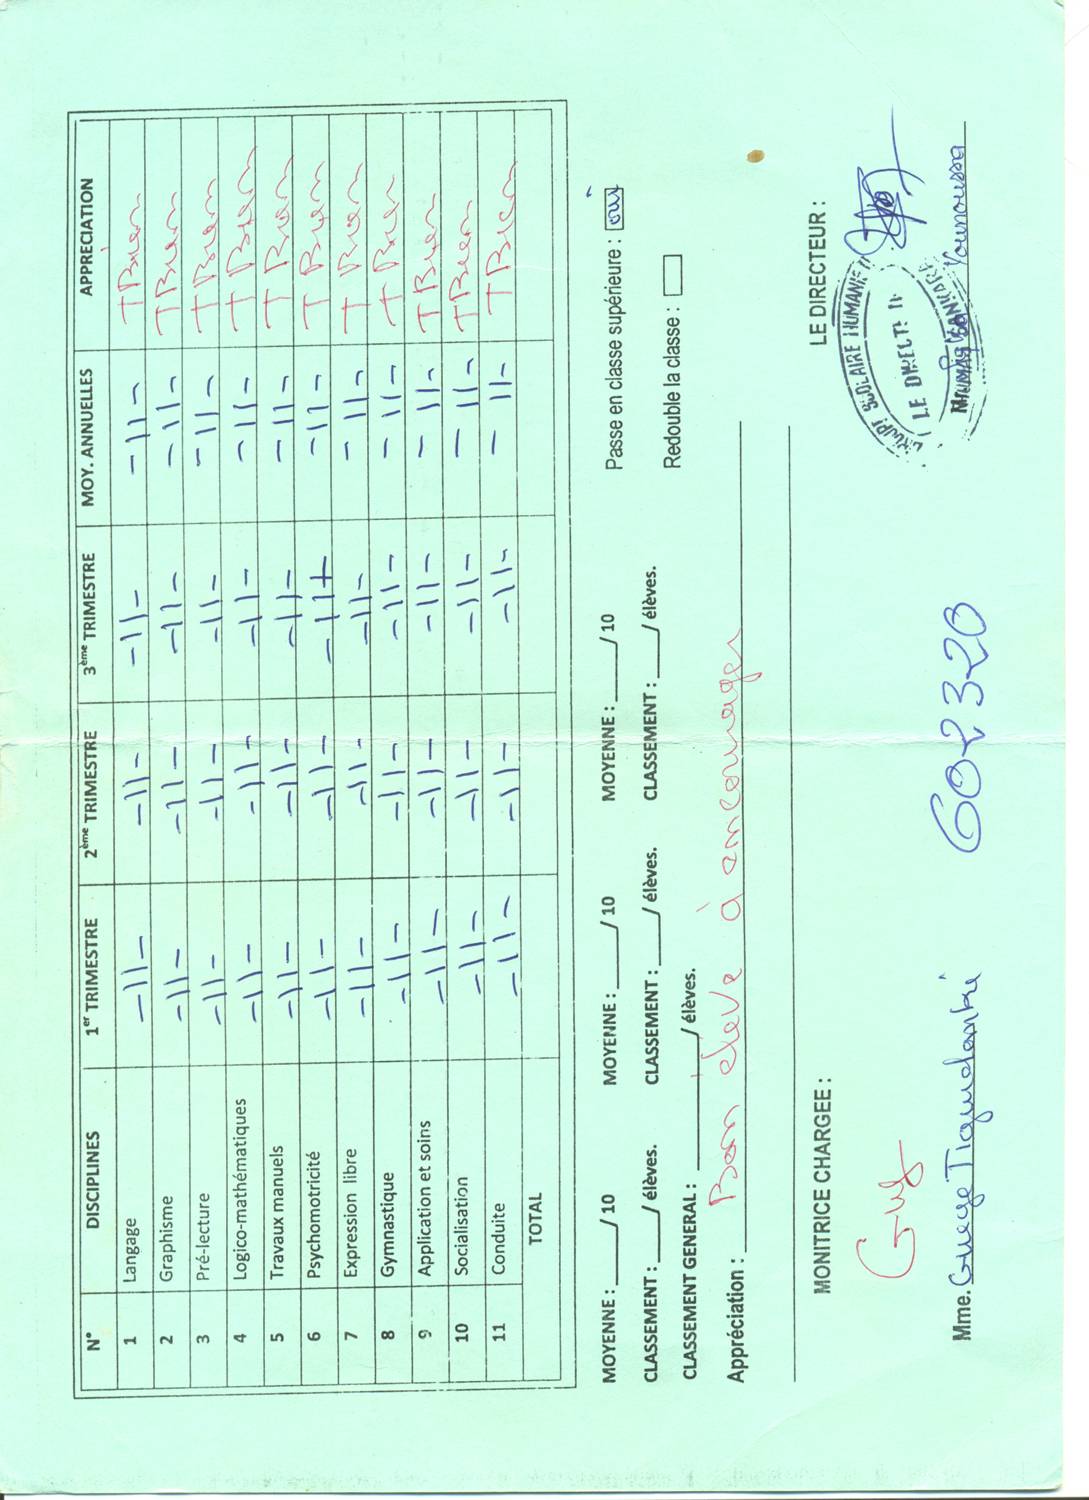 N° DISCIPLINES 1er TRIMESTRE 2ème TRIMESTRE 3ème TRIMESTRE MOY. ANNUELLES APPRECIATION
1 Langage -11- -11- -11- -11- T Bien
2 Graphisme -11- -11- -11- -11- T Bien
3 Pré-lecture -11- -11- -11- -11- T Bien
4 Logico-mathématiques -11- -11- -11- -11- T Bien
5 Travaux manuels -11- -11- -11- -11- T Bien
6 Psychomotricité -11- -11- -11- -11- T Bien
7 Expression libre -11- -11- -11- -11- T Bien
8 Gymnastique -11- -11- -11- -11- T Bien
9 Application et soins -11- -11- -11- -11- T Bien
10 Socialisation -11- -11- -11- -11- T Bien
11 Conduite -11- -11- -11- -11- T Bien
TOTAL
MOYENNE : ____/ 10 MOYENNE : ____/ 10 MOYENNE : ____/ 10 Passe en classe supérieure : oui
CLASSEMENT : ____/ élèves. CLASSEMENT : ____/ élèves. CLASSEMENT : ____/ élèves. Redouble la classe :
CLASSEMENT GENERAL : ________/ élèves.
Appréciation : Bon élève à encourager
MONITRICE CHARGEE : LE DIRECTEUR :
GROUPE SCOLAIRE HUMANI
LE DIRECT
Mme. Gueye 602320 Younoussa